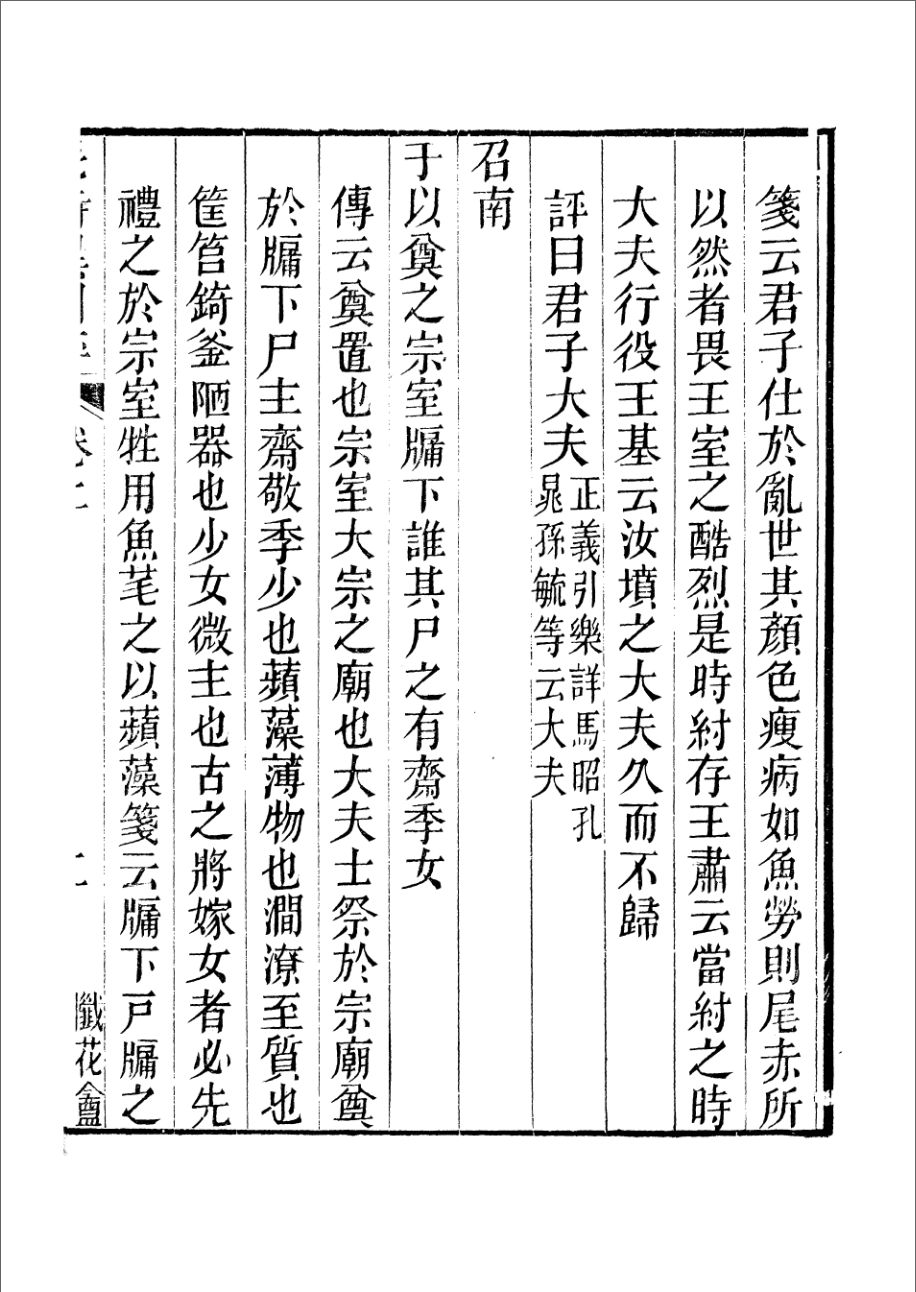 箋云君子仕於亂世其顏色瘦病如魚勞則尾赤所
以然者畏王室之酷烈是時紂存王肅云當紂之時
大夫行役王基云汝墳之大夫久而不歸
評曰君子大夫正義引樂詳馬昭孔
晁孫毓等云大夫
召南
于以奠之宗室牖下誰其尸之有齋季女
傳云奠置也宗室大宗之廟也大夫士祭於宗廟奠
於牖下尸主齋敬季少也蘋藻薄物也澗潦至質也
筐筥錡釜陋器也少女微主也古之將嫁女者必先
禮之於宗室牲用魚芼之以蘋藻箋云牖下戶牖之
二
懺花盦